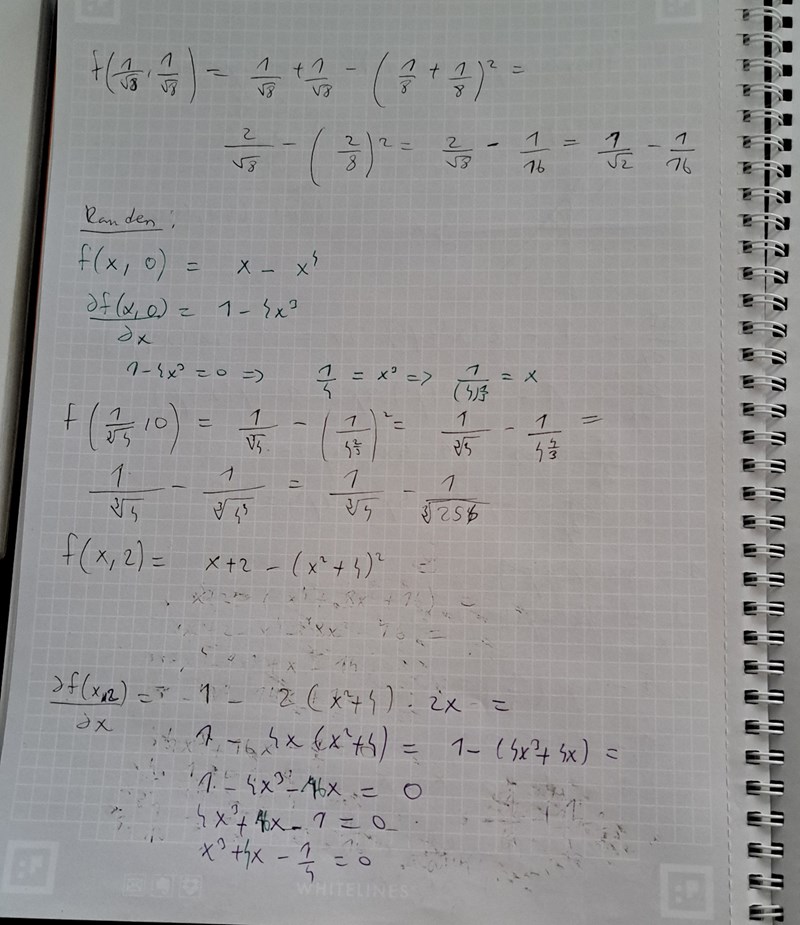 f(1/√8, 1/√8) = 1/√8 + 1/√8 - (1/8 + 1/8)² =
2/√8 - (2/8)² = 2/√8 - 1/16 = 1/√2 - 1/16
Randen:
f(x, 0) = x - x⁴
∂f(x,0)/∂x = 1 - 4x³
1 - 4x³ = 0 => 1/4 = x³ => 1/(4)^⅓ = x
f(1/∛4, 0) = 1/∛4 - (1/4^⅔)² = 1/∛4 - 1/4^(4/3) =
1/∛4 - 1/∛4⁴ = 1/∛4 - 1/∛256
f(x, 2) = x+2 - (x²+4)² =
∂f(x,2)/∂x = 1 - 2(x²+4) · 2x =
1 - 4x(x²+4) = 1 - (4x³+4x) =
1 - 4x³ - 16x = 0
4x³ + 16x - 1 = 0
x³ + 4x - 1/4 = 0
WHITELINES